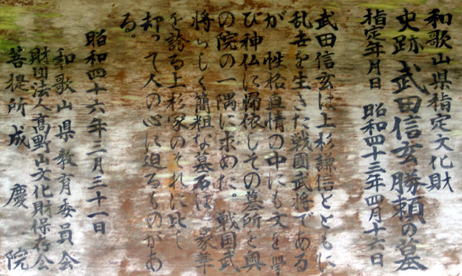 和歌山県指定文化財
史跡 武田信玄勝頼の墓
指定年月日 昭和四十三年四月十六日
武田信玄は上杉謙信とともに
乱世を生きた戦国武将である
が 性拓直情の中にも文を學
び神仏に帰依しその墓所を奥
の院の一隅に求めた。戦国武
将らしく簡粗な墓石は 豪華
を誇る上杉家のそれに比し
却って人の心に迫るものがあ
る。
昭和四十六年三月三十一日
和歌山県教育委員会
財団法人高野山文化財保存会
菩提所 成慶院